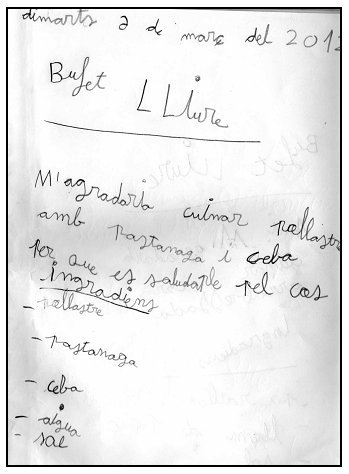 dimarts 2 de març del 2012
Bufet
LLiure
M'agradaria cuinar pollastre
amb pastanaga i ceba
per que es saludaple pel cos
ingradiens
- pollastre
- pastanaga
- ceba
- aigua
- sal